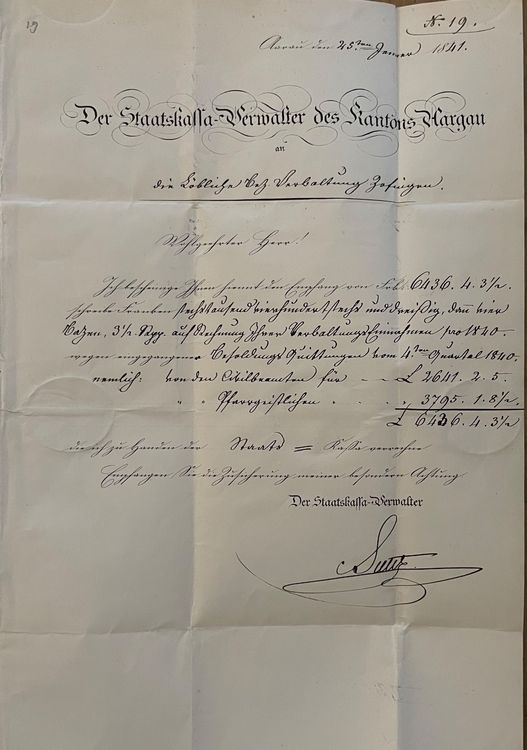 19
N. 19.
Aarau den 25.ten Jenner 1841.
Der Staatskassa-Verwalter des Kantons Aargau
an
die Löbliche Bez. Verwaltung Zofingen.
Wohlgeehrter Herr!
Ich bescheinige Ihnen hiemit den Empfang von Frk. 6436. 4. 3½.
schreibe Franken sechstausend vierhundert sechs und dreißig, dann vier
Batzen, 3½ Rppn. auf Rechnung Ihrer Verwaltungs Einnahmen pro 1840
wegen eingegangener Besoldungs Quittungen vom 4.ten Quartal 1840.
nemlich: von den Civilbeamten für £ 2641. 2. 5.
" " Pfarrgeistlichen " " 3795. 1. 8½.
£ 6436. 4. 3½
die ich zu Handen der Staats = Kassa verrechne
Empfangen Sie die Zusicherung meiner besondern Achtung
Der Staatskassa-Verwalter